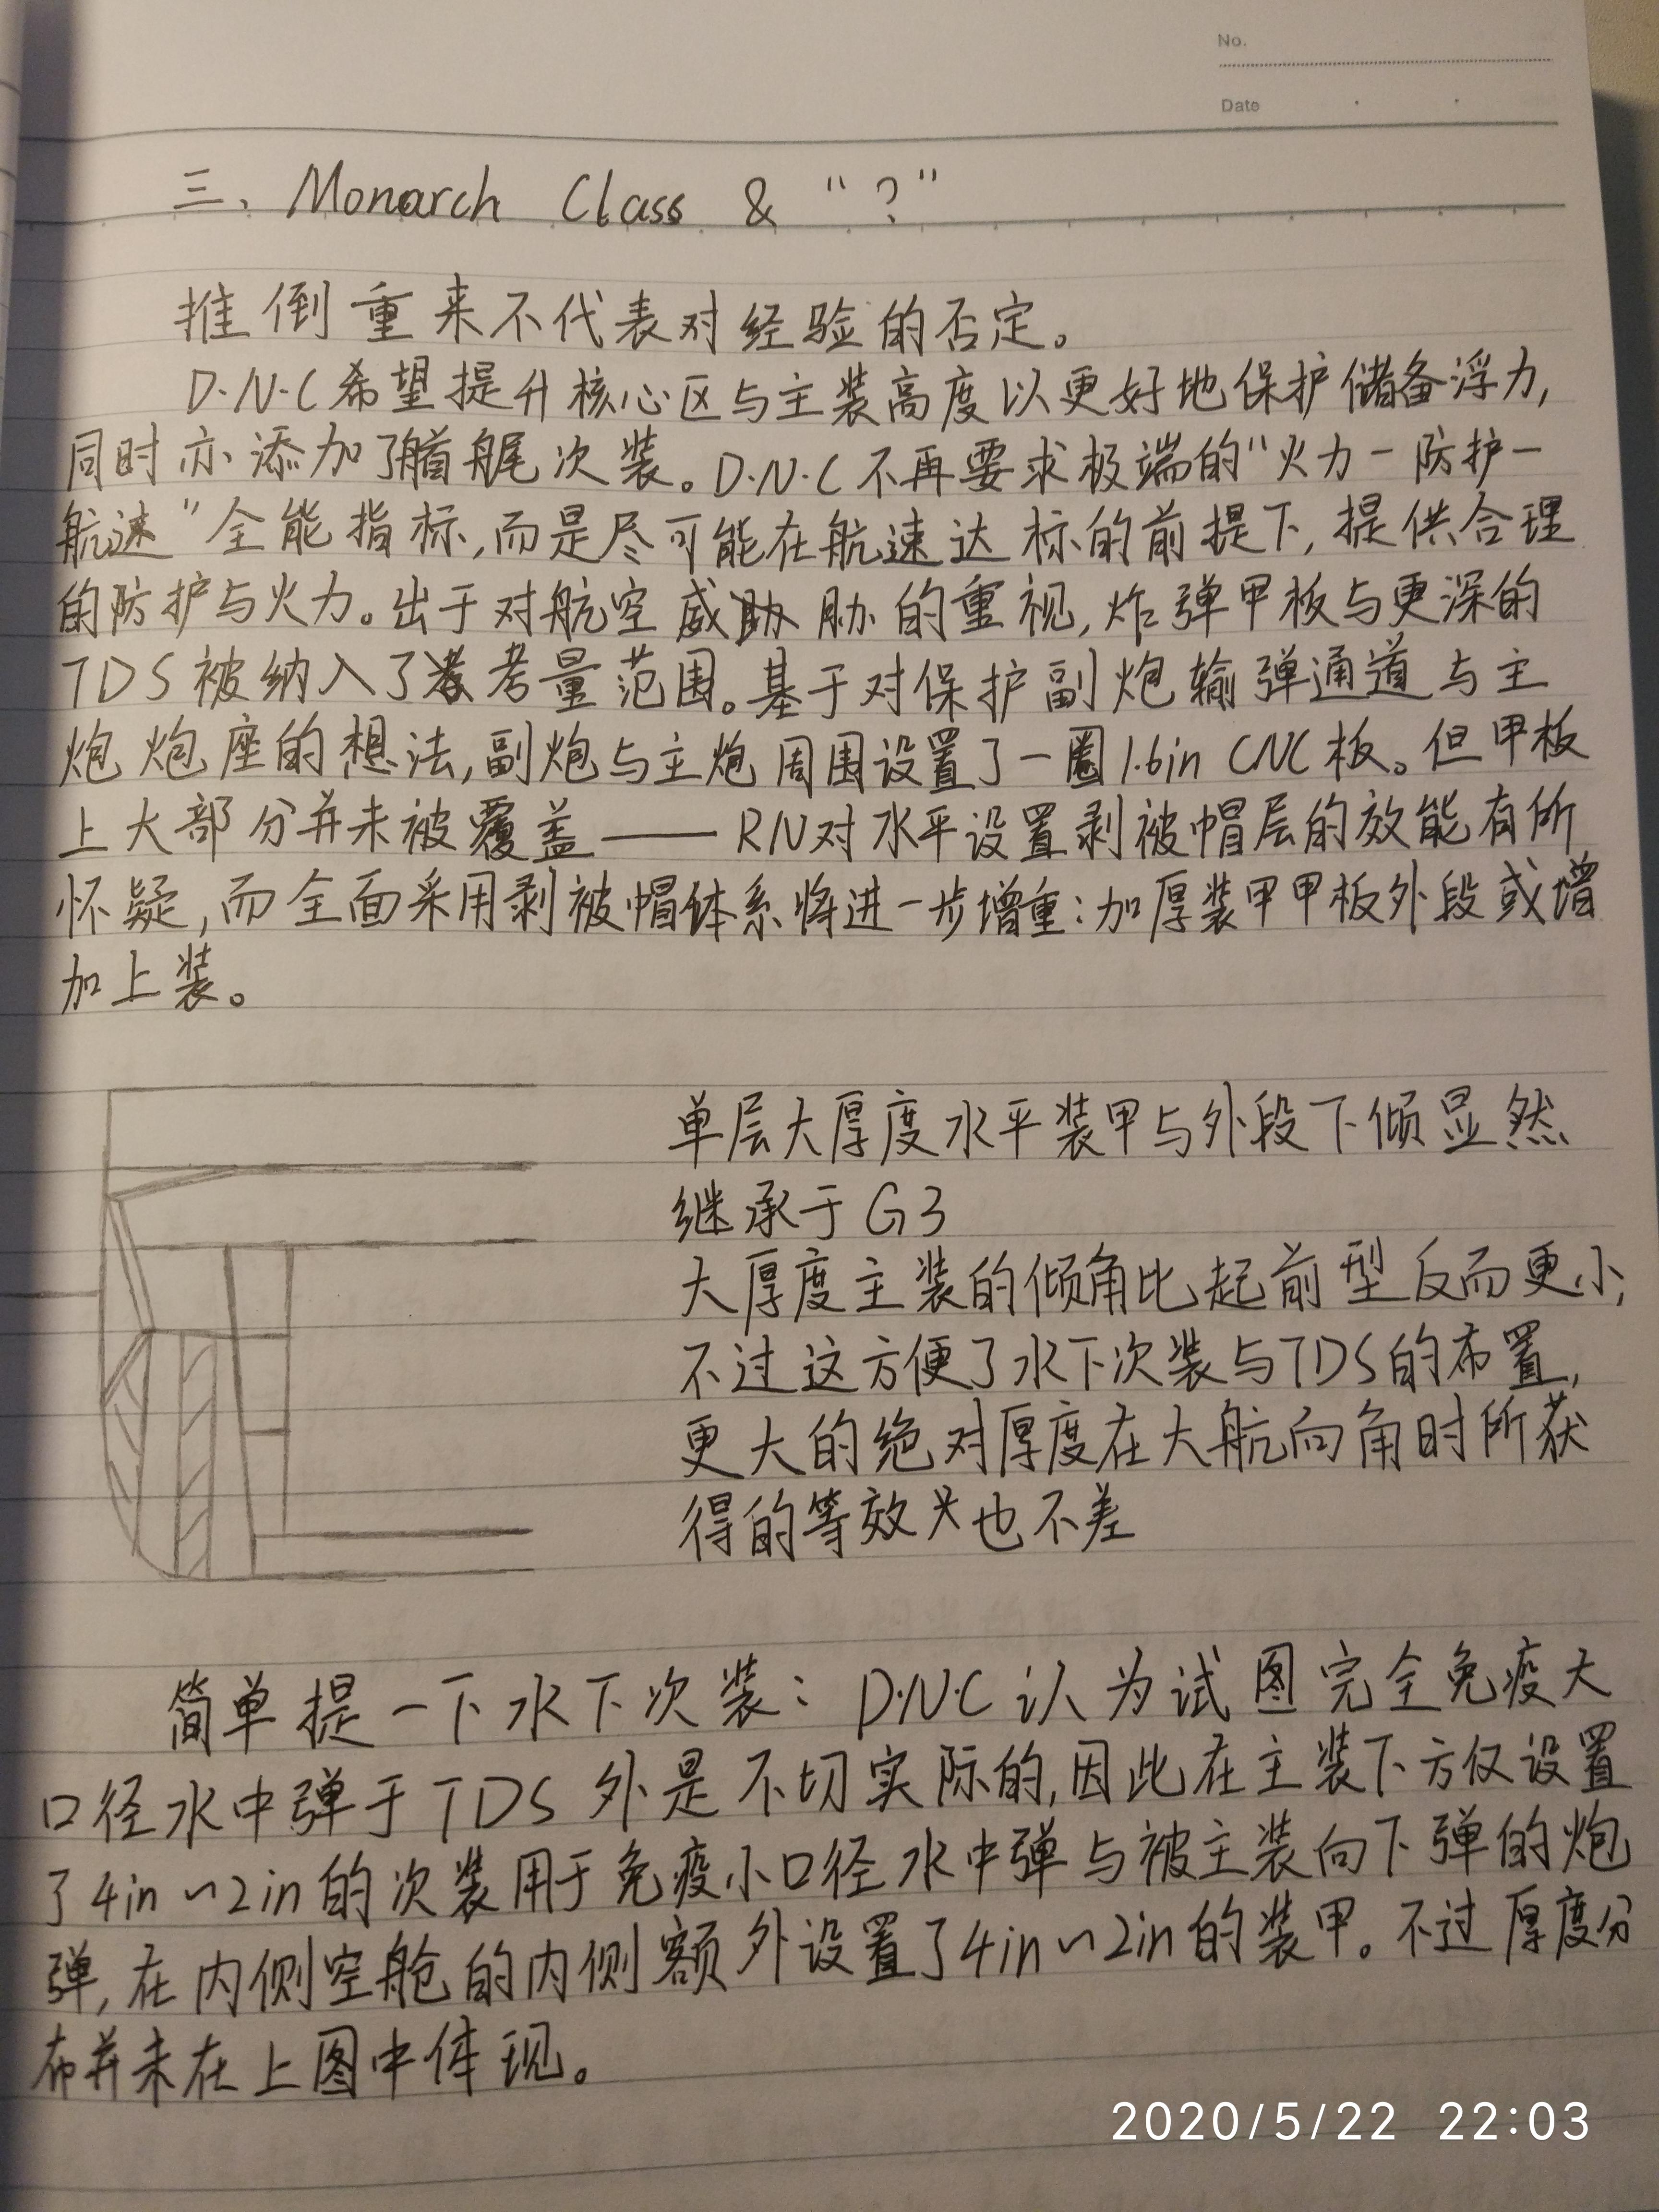 No.
Date
三、Monarch Class & “?”
推倒重来不代表对经验的否定。
D·N·C希望提升核心区与主装高度以更好地保护储备浮力,
同时亦添加了艏艉次装。D·N·C不再要求极端的“火力-防护-
航速”全能指标,而是尽可能在航速达标的前提下,提供合理
的防护与火力。出于对航空威胁的重视,炸弹甲板与更深的
TDS被纳入了考量范围。基于对保护副炮输弹通道与主
炮炮座的想法,副炮与主炮周围设置了一圈1.6in CNC板。但甲板
上大部分并未被覆盖——RN对水平设置剥被帽层的效能有所
怀疑,而全面采用剥被帽体系将进一步增重:加厚装甲甲板外段或增
加上装。
单层大厚度水平装甲与外段下倾显然
继承于G3
大厚度主装的倾角比起前型反而更小,
不过这方便了水下次装与TDS的布置,
更大的绝对厚度在大航向角时所获
得的等效也不差
简单提一下水下次装:D·N·C认为试图完全免疫大
口径水中弹于TDS外是不切实际的,因此在主装下方仅设置
了4in~2in的次装用于免疫小口径水中弹与被主装向下弹的炮
弹,在内侧空舱的内侧额外设置了4in~2in的装甲。不过厚度分
布并未在上图中体现。
2020/5/22 22:03